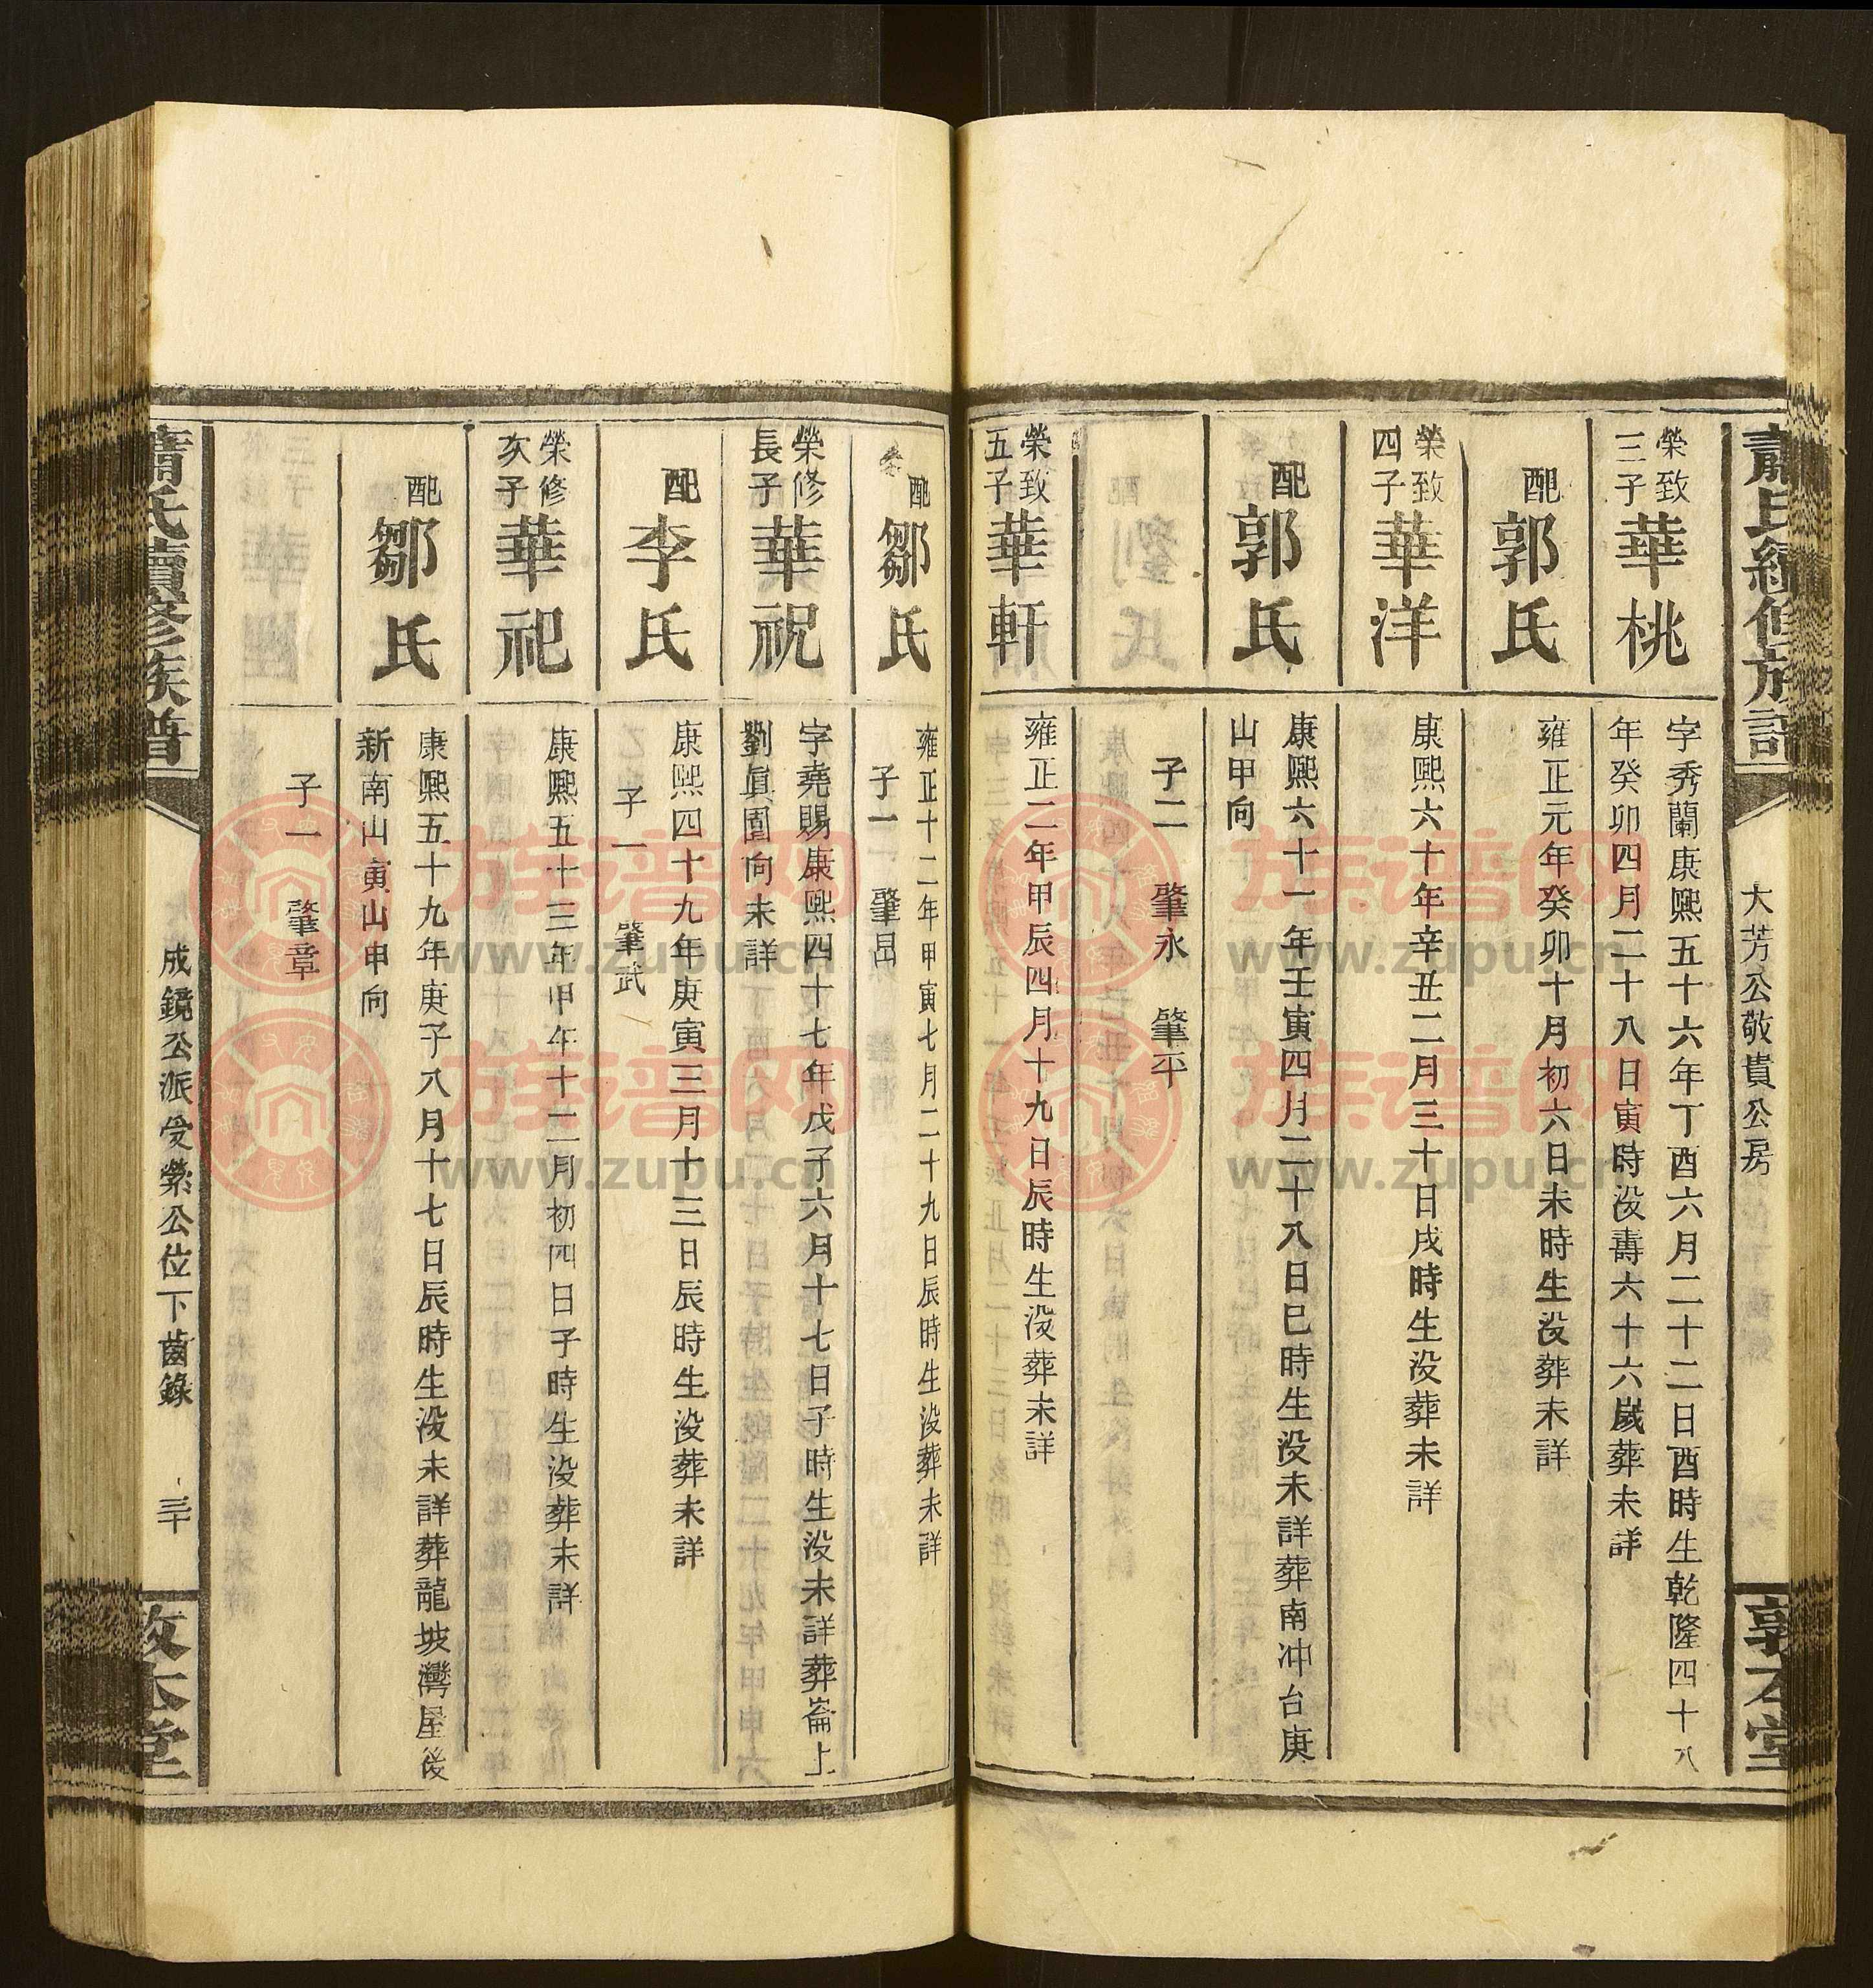 大芳公敬貴公房
榮致
三子
華桃
字秀蘭康熙五十六年丁酉六月二十二日酉時生乾隆四十八
年癸卯四月二十八日寅時没壽六十六歲葬未詳
配
郭氏
雍正元年癸卯十月初六日未時生没葬未詳
榮致
四子
華洋
康熙六十年辛丑二月三十日戌時生没葬未詳
配
郭氏
康熙六十一年壬寅四月二十八日巳時生没未詳葬南冲台庚
山甲向
子二 肇永 肇平
榮致
五子
華軒
雍正二年甲辰四月十九日辰時生没葬未詳
配
鄒氏
雍正十二年甲寅七月二十九日辰時生没葬未詳
子一 肇昌
榮修
長子
華祝
字堯賜康熙四十七年戊子六月十七日子時生没未詳葬崙上
劉眞圍向未詳
配
李氏
康熙四十九年庚寅三月十三日辰時生没葬未詳
子一 肇武
榮修
次子
華祀
康熙五十三年甲午十二月初四日子時生没葬未詳
配
鄒氏
康熙五十九年庚子八月十七日辰時生没未詳葬龍坡灣屋後
新南山寅山申向
子一 肇章
蕭氏續修族譜
成鏡公派受榮公位下齒錄
三十
敦本堂
族谱网
www.zupu.cn
族谱网
www.zupu.cn
族谱网
www.zupu.cn
族谱网
www.zupu.cn